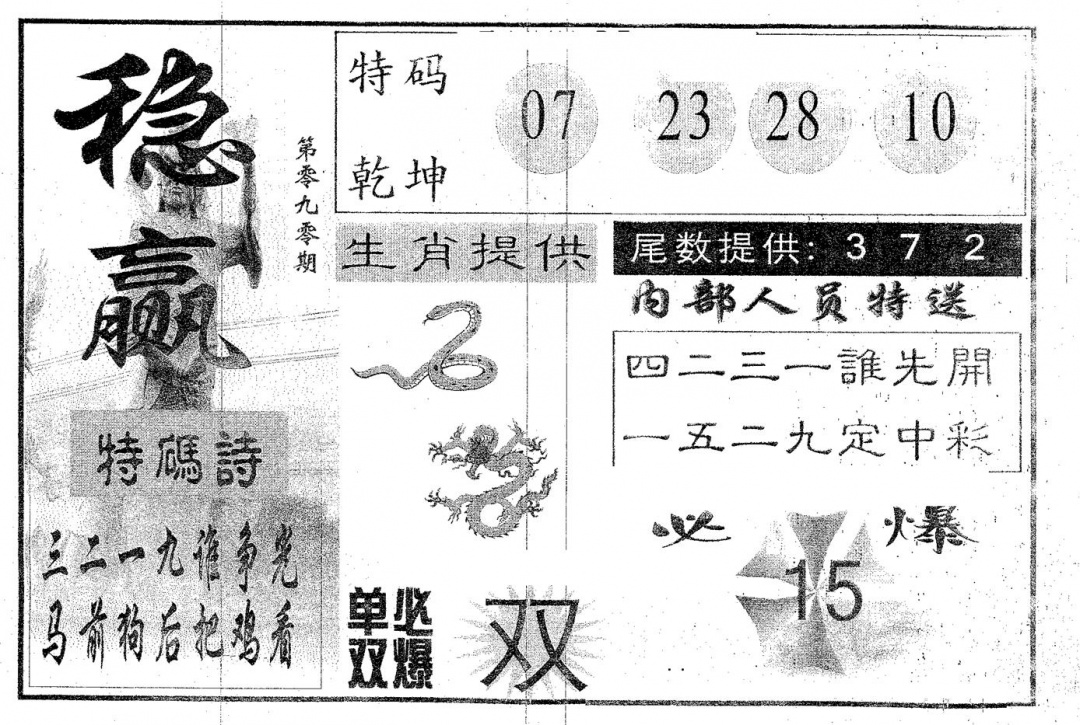 稳
赢
第零九零期
特碼詩
三二一九谁争光
马前狗后把鸡看
特码
乾坤
07 23 28 10
生肖提供
单必
双爆
双
尾数提供: 3 7 2
内部人员特送
四二三一誰先開
一五二九定中彩
必爆
15